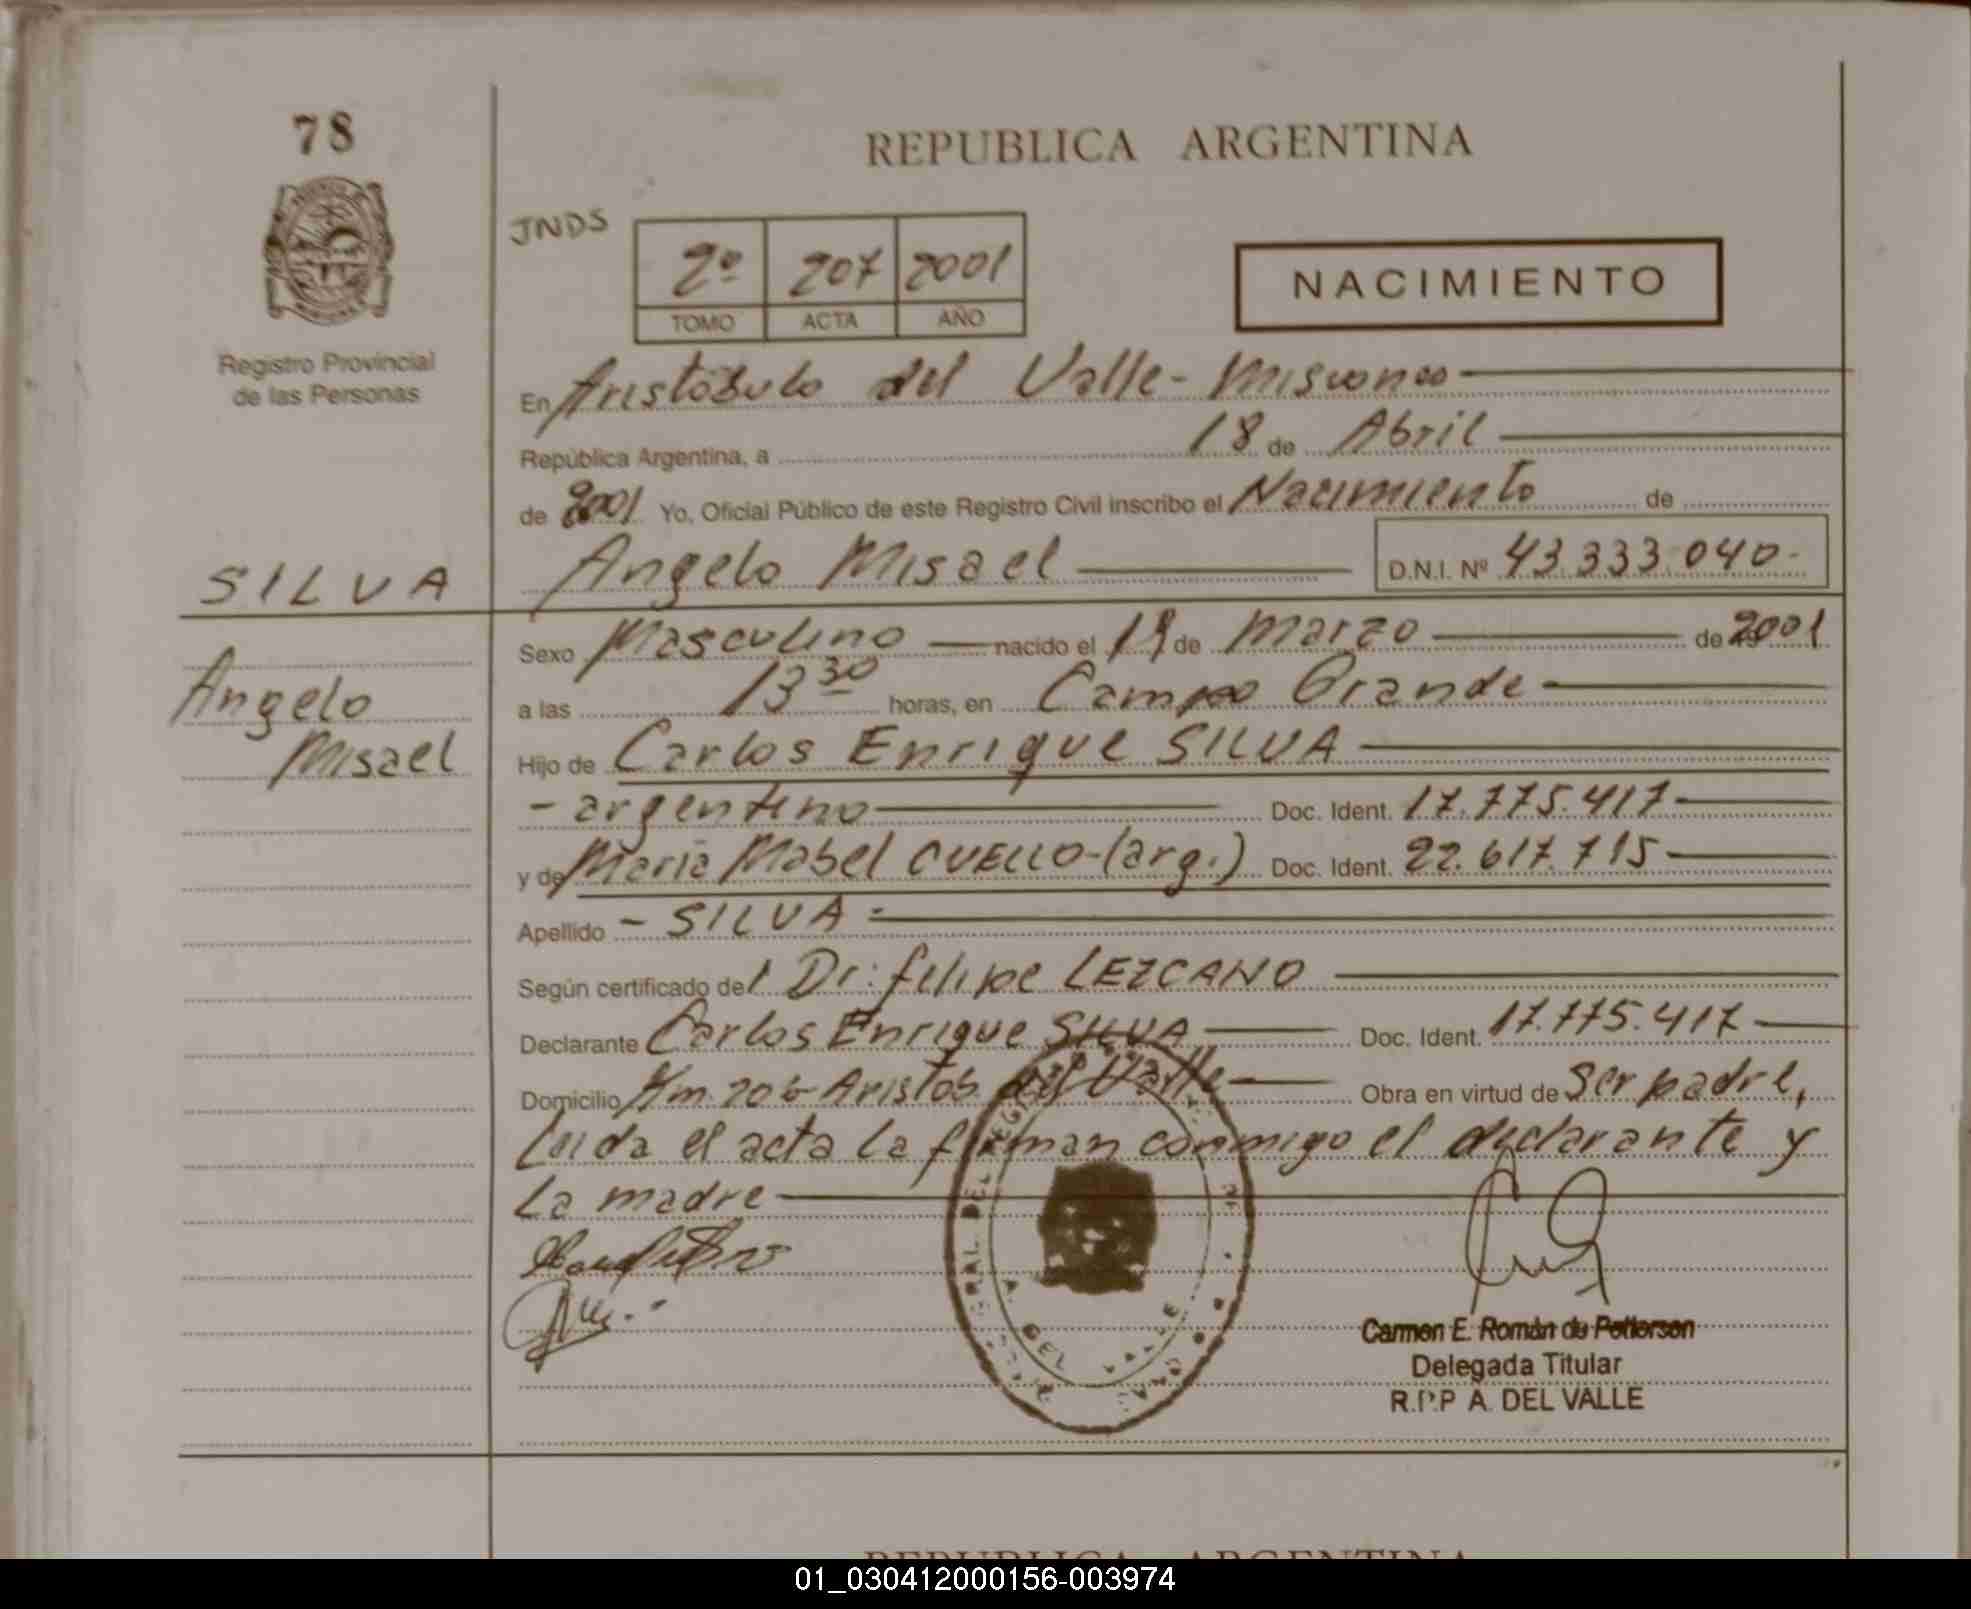 78
REPUBLICA ARGENTINA
JNDS
2º 207 2001
TOMO ACTA AÑO
NACIMIENTO
Registro Provincial
de las Personas
En Aristóbulo del Valle - Misiones
República Argentina, a 18 de Abril
de 2001 Yo, Oficial Público de este Registro Civil inscribo el Nacimiento de
Angelo Misael D.N.I. Nº 43.333.040-
SILVA
Angelo
Misael
Sexo Masculino nacido el 19 de Marzo de 2001
a las 13 30 horas, en Campo Grande
Hijo de Carlos Enrique SILVA
- argentino Doc. Ident. 17.775.417
y de Maria Mabel CUELLO - (arg.) Doc. Ident. 22.617.715
Apellido - SILVA -
Según certificado del Dr: Felipe LEZCANO
Declarante Carlos Enrique SILVA Doc. Ident. 17.775.417
Domicilio Km. 206 Aristob. del Valle Obra en virtud de ser padre,
Leida el acta la firman conmigo el declarante y
La madre
A. DEL VALLE
Carmen E. Román de Petterson
Delegada Titular
R.P.P A. DEL VALLE
REPUBLICA ARGENTINA
01_030412000156-003974